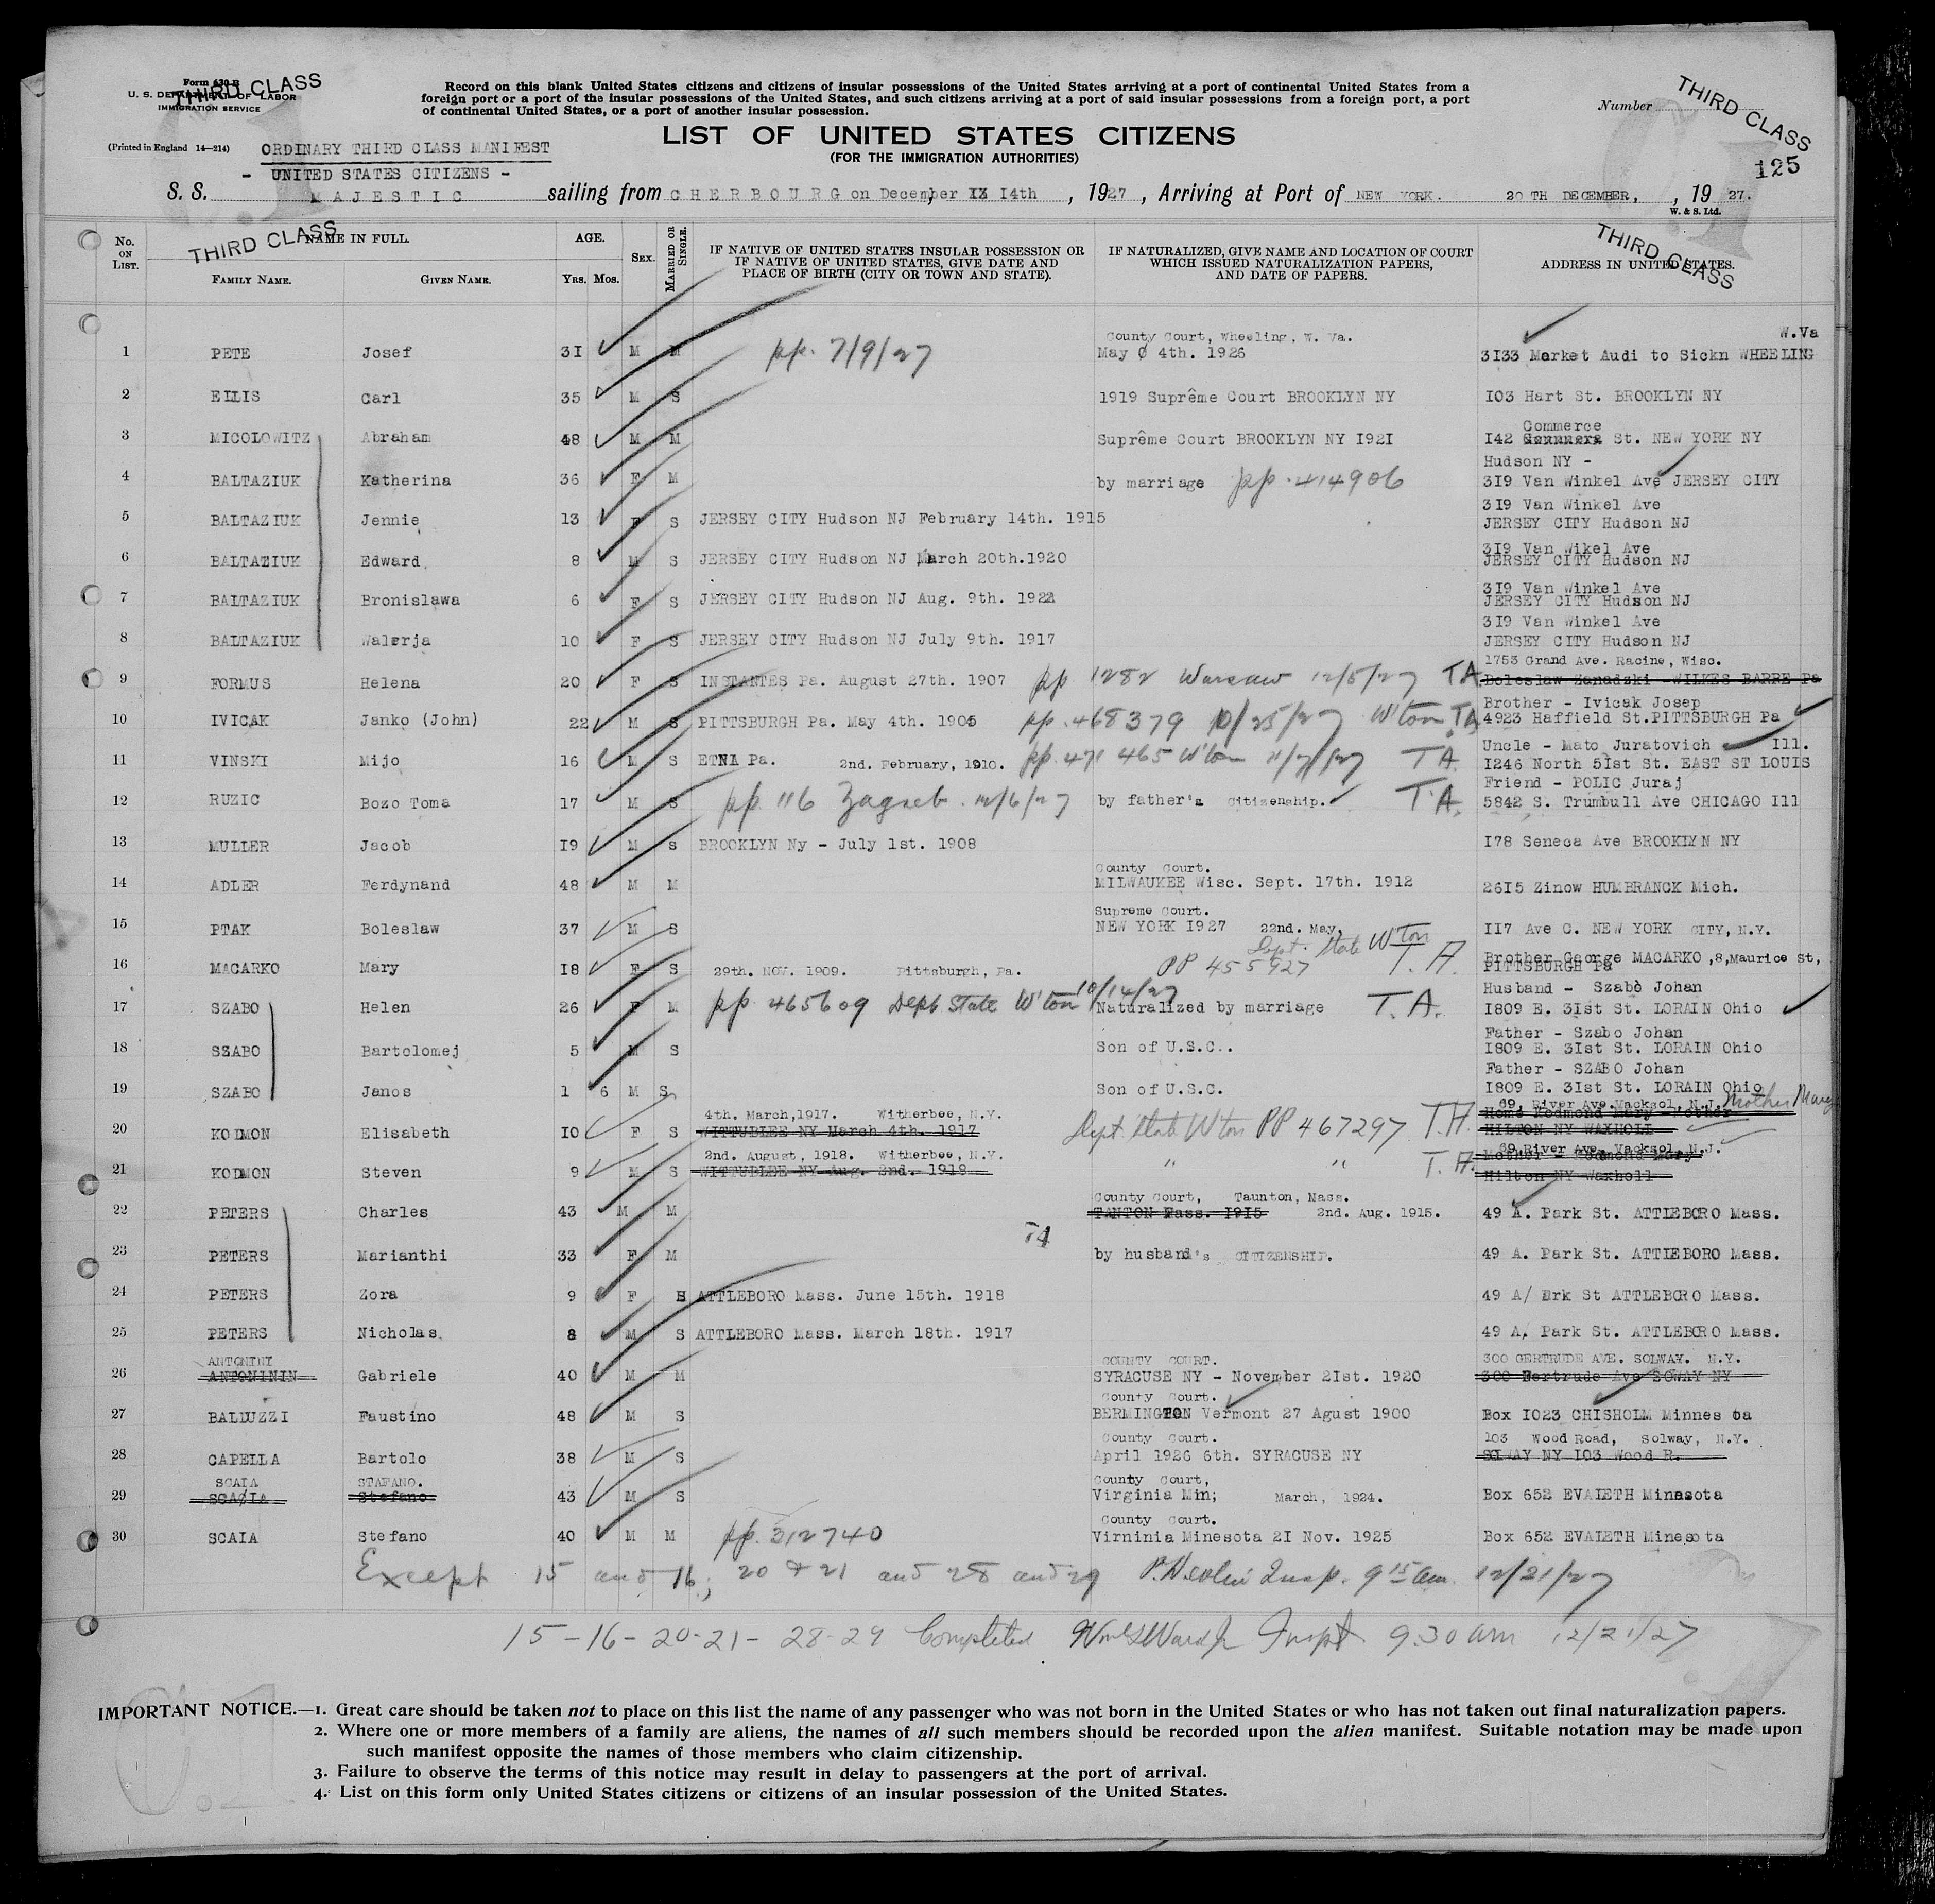 Form 630 B
THIRD CLASS
U. S. DEPARTMENT OF LABOR
IMMIGRATION SERVICE
Record on this blank United States citizens and citizens of insular possessions of the United States arriving at a port of continental United States from a
foreign port or a port of the insular possessions of the United States, and such citizens arriving at a port of said insular possessions from a foreign port, a port
of continental United States, or a port of another insular possession.
Number
THIRD CLASS
125
LIST OF UNITED STATES CITIZENS
(FOR THE IMMIGRATION AUTHORITIES)
(Printed in England 14—214)
ORDINARY THIRD CLASS MANIFEST
- UNITED STATES CITIZENS -
S. S. MAJESTIC sailing from CHERBOURG on December 14th, 1927, Arriving at Port of NEW YORK. 20 TH DECEMBER, , 19 27.
W. & S. Ltd.
No. ON LIST. NAME IN FULL. AGE. SEX. MARRIED OR SINGLE. IF NATIVE OF UNITED STATES INSULAR POSSESSION OR IF NATIVE OF UNITED STATES, GIVE DATE AND PLACE OF BIRTH (CITY OR TOWN AND STATE). IF NATURALIZED, GIVE NAME AND LOCATION OF COURT WHICH ISSUED NATURALIZATION PAPERS, AND DATE OF PAPERS. ADDRESS IN UNITED STATES.
THIRD CLASS THIRD CLASS
FAMILY NAME. GIVEN NAME. Yrs. Mos.
County Court, Wheeling, W. Va. W.Va
1 PETE Josef 31 M M pp. 7/9/27 May 4th. 1926 3133 Market Audi to Sickn WHEELING
2 ELLIS Carl 35 M S 1919 Suprême Court BROOKLYN NY 103 Hart St. BROOKLYN NY
Commerce
3 MICOLOWITZ Abraham 48 M M Suprême Court BROOKLYN NY 1921 142 St. NEW YORK NY
Hudson NY -
4 BALTAZIUK Katherina 36 F M by marriage pp. 414906 319 Van Winkel Ave JERSEY CITY
319 Van Winkel Ave
5 BALTAZIUK Jennie 13 F S JERSEY CITY Hudson NJ February 14th. 1915 JERSEY CITY Hudson NJ
319 Van Wikel Ave
6 BALTAZIUK Edward 8 M S JERSEY CITY Hudson NJ March 20th.1920 JERSEY CITY Hudson NJ
319 Van Winkel Ave
7 BALTAZIUK Bronislawa 6 F S JERSEY CITY Hudson NJ Aug. 9th. 1922 JERSEY CITY Hudson NJ
319 Van Winkel Ave
8 BALTAZIUK Walerja 10 F S JERSEY CITY Hudson NJ July 9th. 1917 JERSEY CITY Hudson NJ
1753 Grand Ave. Racine, Wisc.
9 FORMUS Helena 20 F S INSTANTES Pa. August 27th. 1907 pp 1282 Warsaw 12/5/27 TA Boleslaw Zanadzki -WILKES BARRE Pa
Brother - Ivicsk Josep
10 IVICAK Janko (John) 22 M S PITTSBURGH Pa. May 4th. 1905 pp. 468379 10/25/27 W'ton TA 4923 Haffield St.PITTSBURGH Pa
Uncle - Mato Juratovich Ill.
11 VINSKI Mijo 16 M S ETNA Pa. 2nd. February, 1910. pp. 471465 W'ton 11/7/27 TA 1246 North 51st St. EAST ST LOUIS
Friend - POLIC Juraj
12 RUZIC Bozo Toma 17 M S pp. 116 Zagreb. 12/6/27 by father's Citizenship. T.A. 5842 S. Trumbull Ave CHICAGO Ill
13 MULLER Jacob 19 M S BROOKLYN Ny - July 1st. 1908 178 Seneca Ave BROOKLYN NY
County Court.
14 ADLER Ferdynand 48 M M MILWAUKEE Wisc. Sept. 17th. 1912 2615 Zinow HUMBRANCK Mich.
Supreme Court.
15 PTAK Boleslaw 37 M S NEW YORK 1927 22nd. May, 117 Ave C. NEW YORK CITY, N.Y.
Dept. State W'ton
16 MACARKO Mary 18 F S 29th. NOV. 1909. Pittsburgh, Pa. PP 455927 T.A. Brother George MACARKO ,8,Maurice St, PITTSBURGH Pa
10/14/27 Husband - Szabò Johan
17 SZABO Helen 26 F M pp. 465609 Dept State W'ton Naturalized by marriage T.A. 1809 E. 31st St. LORAIN Ohio
Father - Szabo Johan
18 SZABO Bartolomej 5 M S Son of U.S.C.. 1809 E. 31st St. LORAIN Ohio
Father - SZABO Johan
19 SZABO Janos 1 6 M S Son of U.S.C. 1809 E. 31st St. LORAIN Ohio
4th. March,1917. Witherbee, N.Y. 69, River Ave.Yacksol, N.J. Mother Mary
20 KODMON Elisabeth 10 F S WITTUBLEE NY March 4th. 1917 Dept. State W'ton PP 467297 T.A. Home Kodmond Mary -Mother HILTON NY WAXHOLL
2nd. August, 1918. Witherbee, N.Y. 69,River Ave. Yacksol, N.J.
21 KODMON Steven 9 M S WITTUBLEE NY Aug. 2nd. 1919 " " T.A. Mother - Kodmond Mary Hilton NY Waxholl
County Court, Taunton, Mass.
22 PETERS Charles 43 M M TANTON Mass. 1915 2nd. Aug. 1915. 49 A. Park St. ATTLEBORO Mass.
74
23 PETERS Marianthi 33 F M by husband's CITIZENSHIP. 49 A. Park St. ATTLEBORO Mass.
24 PETERS Zora 9 F S ATTLEBORO Mass. June 15th. 1918 49 A/ Brk St ATTLEBORO Mass.
25 PETERS Nicholas. 8 M S ATTLEBORO Mass. March 18th. 1917 49 A. Park St. ATTLEBORO Mass.
ANTONINI COUNTY COURT. 300 GERTRUDE AVE. SOLWAY. N.Y.
26 ANTONININ Gabriele 40 M M SYRACUSE NY - November 21st. 1920 300 Bertrude Ave SOWAY NY
County Court.
27 BALDUZZI Faustino 48 M S BERMINGTON Vermont 27 Agust 1900 Box 1023 CHISHOLM Minnes ta
County Court. 103 Wood Road, Solway, N.Y.
28 CAPELLA Bartolo 38 M S April 1926 6th. SYRACUSE NY SOLWAY NY 103 Wood R.
SCAIA STAFANO. County Court,
29 Stefano 43 M S Virginia Min; March, 1924. Box 652 EVALETH Minesota
County Court.
30 SCAIA Stefano 40 M M pp. 312740 Virninia Minesota 21 Nov. 1925 Box 652 EVALETH Mineso ta
Except 15 and 16; 20 & 21 and 28 and 29 Insp. 9 15 am. 12/21/27
15-16-20-21-28-29 Completed Inspt 9.30 am 12/21/27
IMPORTANT NOTICE.—1. Great care should be taken not to place on this list the name of any passenger who was not born in the United States or who has not taken out final naturalization papers.
2. Where one or more members of a family are aliens, the names of all such members should be recorded upon the alien manifest. Suitable notation may be made upon
such manifest opposite the names of those members who claim citizenship.
3. Failure to observe the terms of this notice may result in delay to passengers at the port of arrival.
4. List on this form only United States citizens or citizens of an insular possession of the United States.